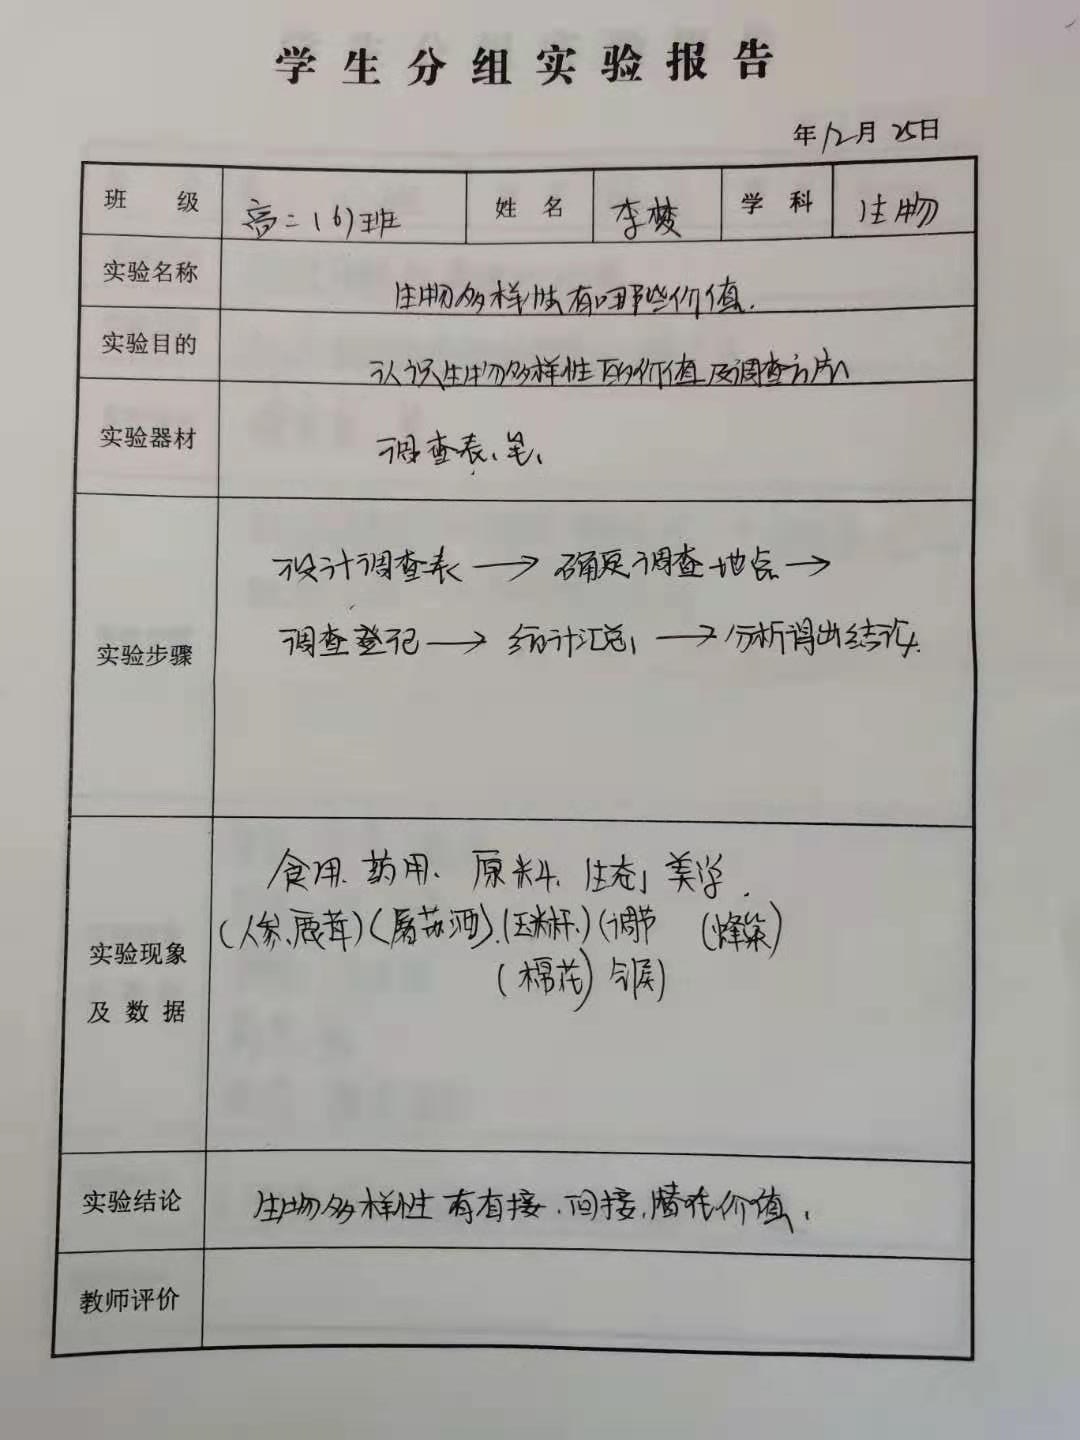 学生分组实验报告
年12月25日
班 级 高二(6)班 姓名 李梭 学科 生物
实验名称 生物多样性有哪些价值.
实验目的 认识生物多样性的价值及调查方法
实验器材 调查表、笔、
设计调查表 → 确定调查地点 →
实验步骤 调查登记 → 统计汇总 → 分析得出结论.
食用、药用、原料、生态、美学.
实验现象 (人参、鹿茸)(屠苏酒).(玉米杆、)(调节 (蜂巢)
及数据 (棉花) 气候)
实验结论 生物多样性有直接、间接、潜在价值、
教师评价